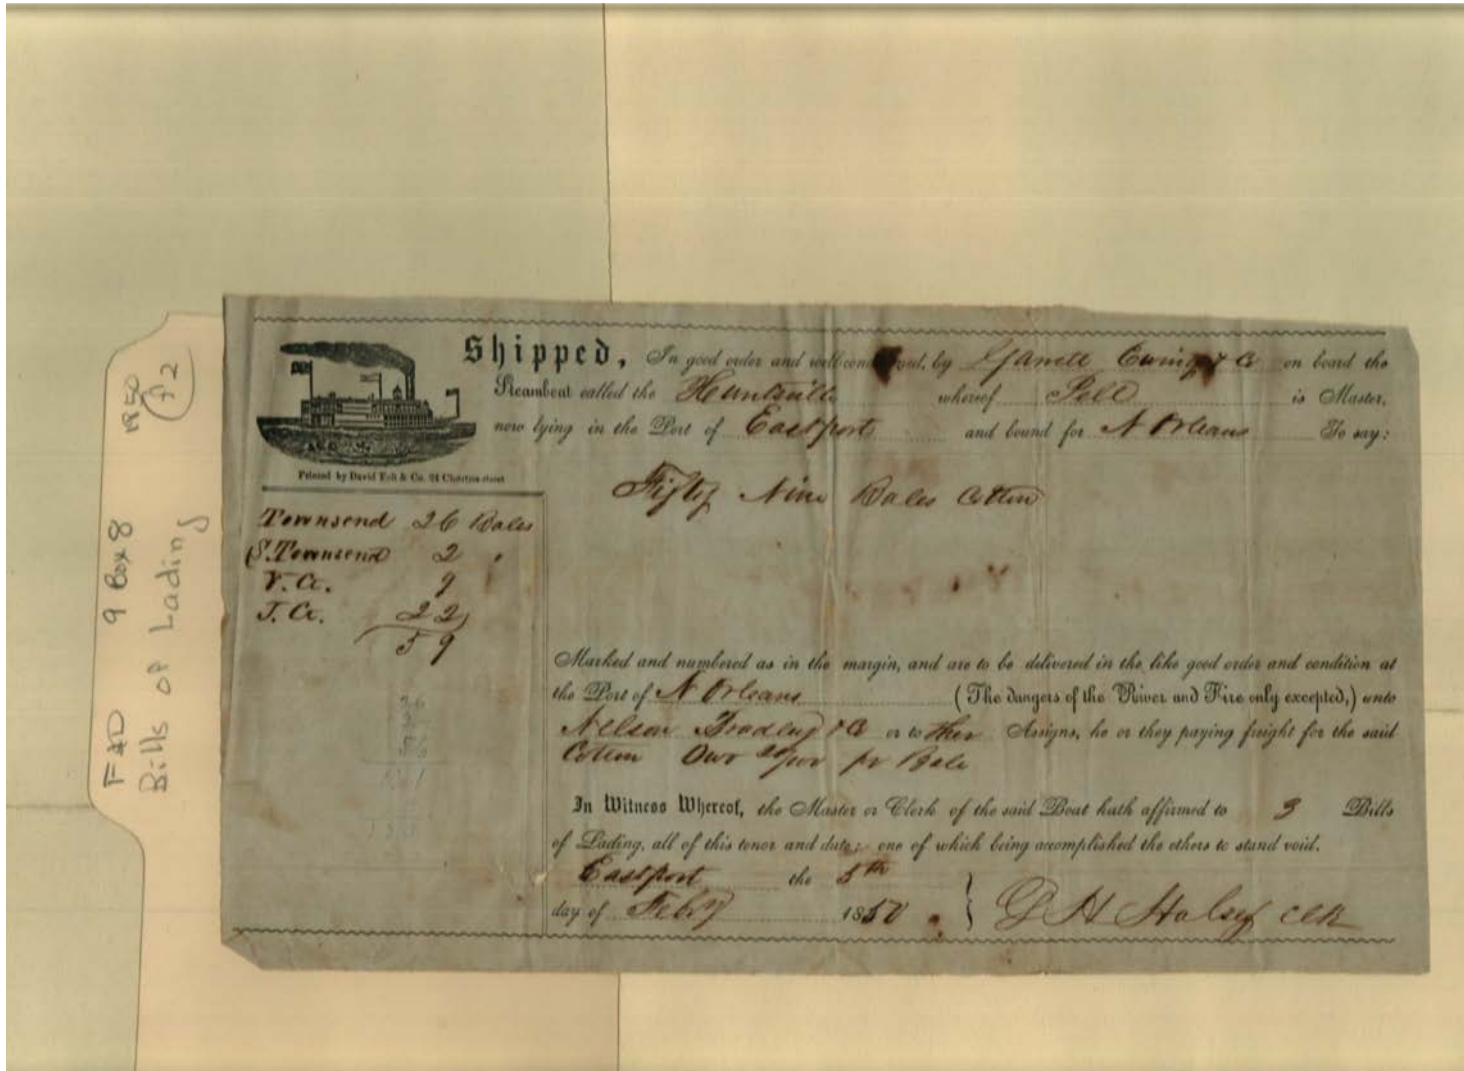 F&D 9 Box 8 1850
Bills of Lading f2
Shipped, In good order and well conditioned, by & Co on board the
Steamboat called the Huntsville whereof Pell is Master,
now lying in the Port of Eastport and bound for N Orleans To say:
Printed by David Felt & Co. Chartres street
Fifty Nine Bales Cotton
Townsend 26 Bales
S. Townsend 2 "
V. Co. 9
T. Co. 22
59
Marked and numbered as in the margin, and are to be delivered in the like good order and condition at
the Port of N Orleans (The dangers of the River and Fire only excepted,) unto
Nelson Bradley & Co or to Assigns, he or they paying freight for the said
Cotton pr Bale
In Witness Whereof, the Master or Clerk of the said Boat hath affirmed to 3 Bills
of Lading, all of this tenor and date; one of which being accomplished the others to stand void.
Eastport the 5th
day of Feby 1850
G H Halsey Clk